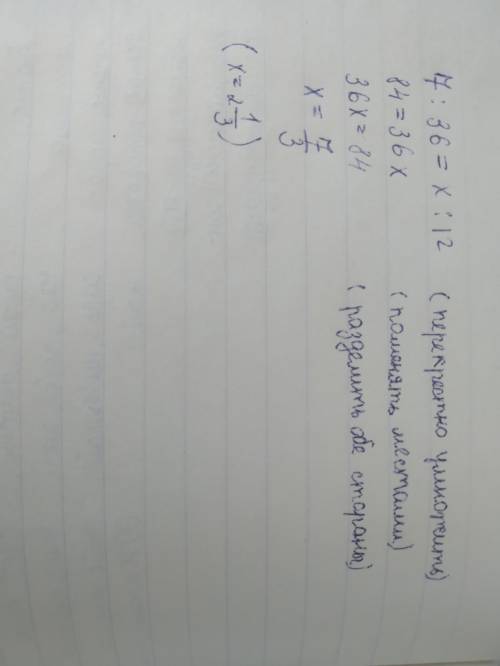 7 : 36 = x : 12 (перекрестно умножить)
84 = 36x (поменять местами)
36x = 84 (разделить обе стороны)
x = 7/3
(x = 2 1/3)